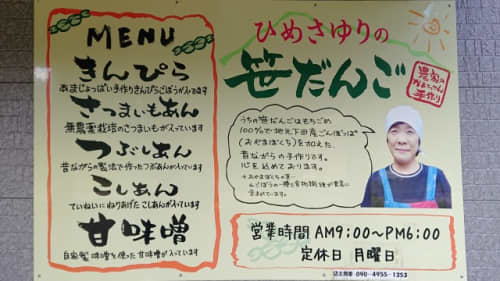 MENU
きんぴら
あまじょっぱい手作りきんぴらごぼうが入ってます
さつまいもあん
無農薬栽培のさつまいもが入っています
つぶしあん
昔ながらの製法で作ったつぶあんが入ってます
こしあん
ていねいにねりあげたこしあんが入ってます
甘味噌
自家製味噌を使った甘味噌が入ってます
ひめさゆりの
笹だんご
農家の
かあちゃん
手作り
うちの笹だんごはもちごめ
100%で地元下田産ごんぼっぱ
(おやまぼくち)を加えた、
昔ながらの手作りです。
心を込めております。
営業時間 AM9:00〜PM6:00
定休日 月曜日
店主携帯 090-4955-1353